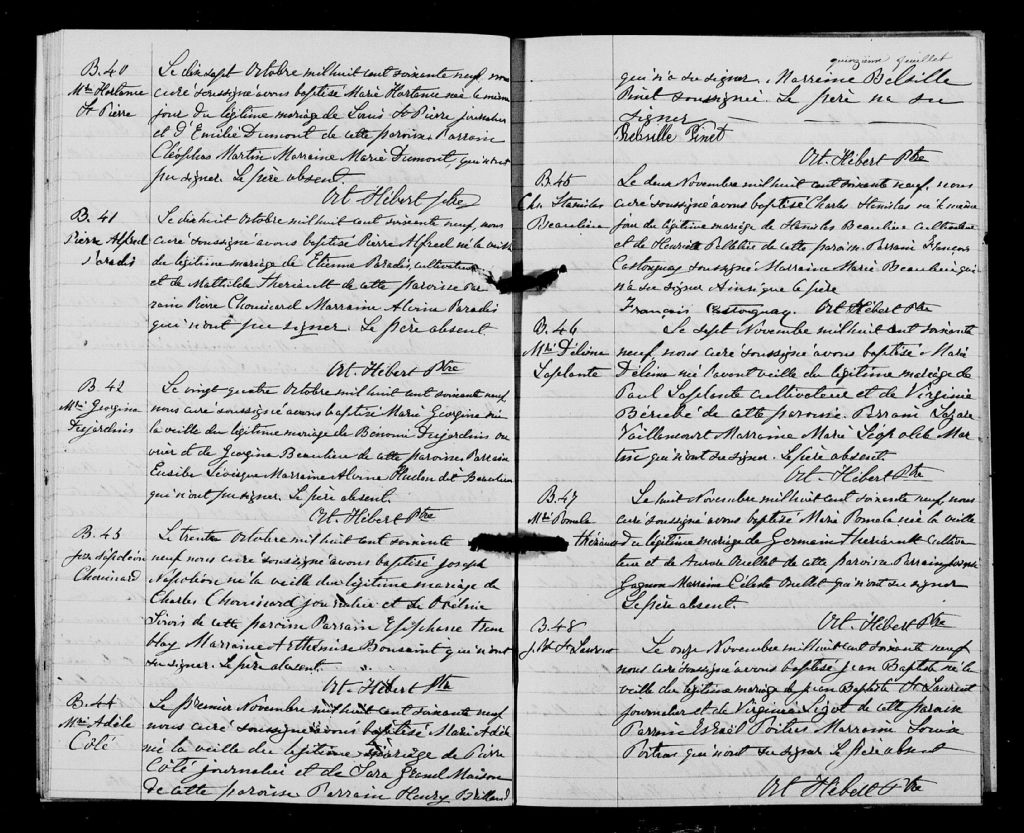 B. 40
Mie Hortense
St Pierre
Le dix sept Octobre mil huit cent soixante neuf, nous
curé soussigné avons baptisé Marie Hortense née le même
jour du légitime mariage de Louis St Pierre journalier
et d'Emilie Dumont de cette paroisse Parrain
Cléophas Martin Marraine Marie Dumont, qui n'ont
pu signer. Le père absent.
Art Hébert Ptre
B. 41
Pierre Alfred
Paradis
Le dix huit Octobre mil huit cent soixante neuf, nous
curé soussigné avons baptisé Pierre Alfred né la veille
du légitime mariage de Etienne Paradis, cultivateur
et de Mathilde Theriault de cette paroisse Par
rain Pierre Chouinard Marraine Alvine Paradis
qui n'ont pu signer Le père absent
Art Hébert Ptre
B. 42
Mie Georgina
Dujardins
Le vingt quatre Octobre mil huit cent soixante neuf
nous curé soussigné avons baptisé Marie Georgina née
la veille du légitime mariage de Bénomi Dujardins ou
vrier et de Georgina Beaulieu de cette paroisse Parrain
Eusèbe Lévesque Marraine Alvine Hudon dit Beaulieu
qui n'ont pu signer. Le père absent.
Art Hébert Ptre
B. 43
Jos. Napoléon
Chouinard
Le trente Octobre mil huit cent soixante
neuf nous curé soussigné avons baptisé Joseph
Napoléon né la veille du légitime mariage de
Charles Chouinard journalier et de
Sirois de cette paroisse Parrain Epiphane Trem
blay Marraine Arthémise Boussaint qui n'ont
su signer. Le père absent.
Art. Hébert Ptre
B. 44
Mie Adèle
Côté
Le premier Novembre mil huit cent soixante neuf
nous curé soussigné avons baptisé Marie Adèle
née la veille du légitime mariage de Pierre
Côté journalier et de Sara Grand Maison
de cette paroisse Parrain Henry
quinzième feuillet
qui n'a su signer. Marraine Belzille
Pinet soussignée. Le père na su
signer
Belzille Pinet
Art. Hébert Ptre
B. 45
Chs. Stanislas
Beaulieu
Le deux Novembre mil huit cent soixante neuf, nous
curé soussigné avons baptisé Charles Stanislas né le même
jour du légitime mariage de Stanislas Beaulieu cultivateur
et de Henriette Pelletier de cette paroisse. Parrain François
Castonguay soussigné Marraine Marie Beaulieu qui
n'a su signer Ainsi que le père
François Castonguay. Art Hébert Ptre
B. 46
Mie Délima
Laplante
Le sept Novembre mil huit cent soixante
neuf, nous curé soussigné avons baptisé Marie
Délima née l'avant veille du légitime mariage de
Paul Laplante cultivateur et de Virginie
Bérubé de cette paroisse. Parrain Lazare
Vaillencourt Marraine Marie Léopolde Mar
tin qui n'ont su signer. Le père absent.
Art. Hébert Ptre
B. 47
Mie Pomela
Thériault
Le huit Novembre mil huit cent soixante neuf, nous
curé soussigné avons baptisé Marie Pomela née la veille
du légitime mariage de Germain Theriault cultiva
teur et de Aurore Ouellet de cette paroisse Parrain
Gagnon Marraine Céleste Ouellet qui n'ont su signer
Le père absent.
Art. Hébert Ptre
B. 48
J. Bte St Laurent
Le onze Novembre mil huit cent soixante neuf
nous curé soussigné avons baptisé Jean Baptiste né la
veille du légitime mariage de Jean Baptiste St Laurent
journalier et de Virginie de cette paroisse
Parrain Esraël Poitras Marraine Louise
Poitras qui n'ont su signer. Le père absent
Art Hébert Ptre